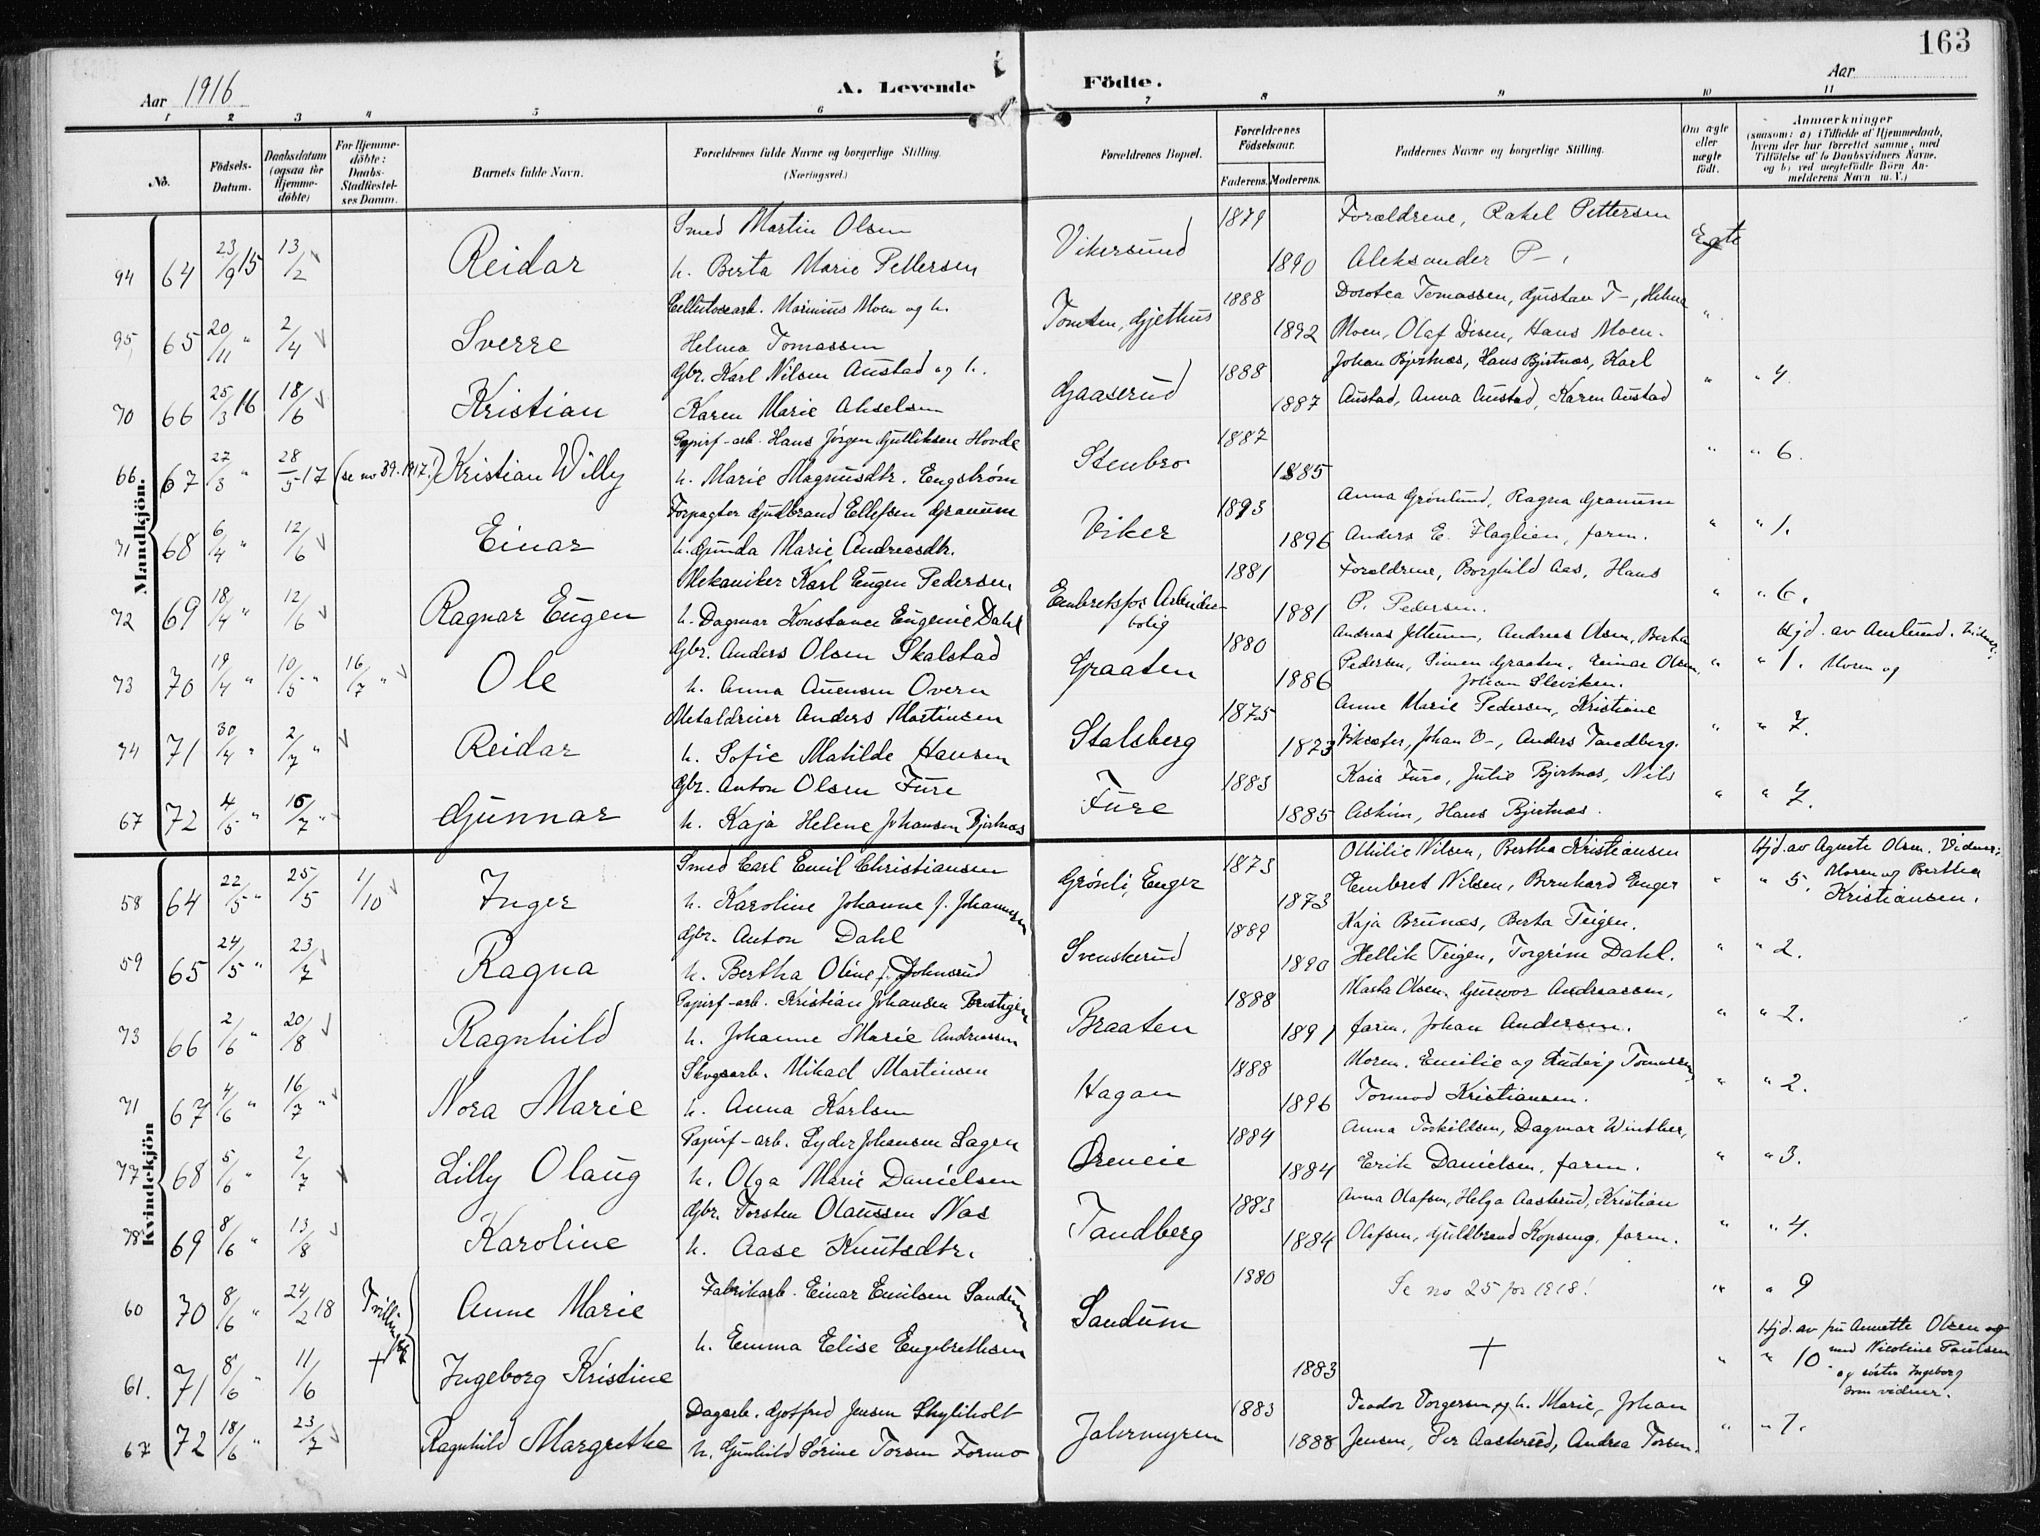 163
Aar 1916
A. Levende Födte.
Aar
1 2 3 4 5 6 7 8 9 10 11
No.
Födsels-Datum.
Daabsdatum (ogsaa for Hjemme-döbte)
For Hjemme-döbte: Daabs-Stadfæstel-ses Datum.
Barnets fulde Navn.
Forældrenes fulde Navne og borgerlige Stilling. (Næringsvei.)
Forældrenes Bopæl.
Forældrenes Födselsaar.
Faderens. Moderens.
Faddernes Navne og borgerlige Stilling.
Om ægte eller uægte födt.
Anmærkninger
(saasom: a) i Tilfælde af Hjemmedaab,
hvem der har forrettet samme, med
Tilföielse af to Daabsvidners Navne,
og b) ved uægtefödte Börn An-
melderens Navn m. V.)
Mandkjön.
94 64 23/9 15 13/2 Reidar Smed Martin Olsen Vikersund 1879 Forældrene, Rakel Pettersen Egte
h. Berta Marie Pettersen 1890 Aleksander P-,
95 65 20/11 " 2/4 Sverre Cellulosearb. Marinius Moen og h. Tomten, Gjethus 1888 Dorotea Tomassen, Gustav T-, Helma "
Helma Tomassen 1892 Moen, Olaf Disen, Hans Moen.
70 66 25/3 16 18/6 Kristian Gbr. Karl Nilsen Austad og h. Gaaserud 1888 Johan Bjertnæs, Hans Bjertnæs, Karl " " 4.
Karen Marie Akselsen 1887 Austad, Anna Austad, Karen Austad
66 67 27/3 " 28/5 17 (se no 39.1917.) Kristian Willy Papirf-arb. Hans Jørgen Gulliksen Hovde Stenbro 1887 " " 6.
h. Marie Magnusdtr. Engstrøm 1885
71 68 6/4 " 12/6 Einar Forpagter Gudbrand Ellefsen Granum Viker 1893 Anna Grønlund, Ragna Granum " " 1.
h. Gunda Marie Andreasdtr. 1896 Anders E. Flaglien, farm.
72 69 18/4 " 12/6 Ragnar Eugen Mekaniker Karl Eugen Pedersen Embretsfos Arbeider-bolig 1881 Forældrene, Borghild Aas, Hans " " 6.
h. Dagmar Konstance Eugenie Dahl 1881 P. Pedersen.
73 70 19/4 " 10/5 " 16/7 " Ole Gbr. Anders Olsen Skalstad Graaten 1880 Andreas Jellum, Andreas Olsen, Berthe Hjd. av Amlund. Vidner:
h. Anna Auensen Overn 1886 Pedersen, Simen Graaten, Einar Olsen, " " 1. Moren og
Johan Sleviken.
74 71 30/4 " 2/7 " Reidar Metaldreier Anders Martinsen Stalsberg 1875 Anne Marie Pedersen, Kristiane " " 7.
h. Sofie Matilde Hansen 1873 Johan V-, Anders Tandberg.
67 72 4/5 " 16/7 " Gunnar Gbr. Anton Olsen Fure Fure 1883 Kaia Fure, Julie Bjertnæs, Nils " " 7.
h. Kaja Helene Johansen Bjertnæs 1885 Askim, Hans Bjertnæs.
Kvindekjön
58 64 22/5 " 25/5 1/10 Inger Smed Carl Emil Christiansen Grønli, Enger 1873 Othilie Nilsen, Bertha Kristiansen Hjd. av Agnete Olsen. Vidner:
h. Karoline Johanne f. Johannesen 1873 Embret Nilsen, Bernhard Enger " " 5. Moren og Bertha Kristiansen.
59 65 24/5 " 23/7 Ragna Gbr. Anton Dahl Svenskerud 1889 Kaja Brunæs, Berta Teigen. " " 2.
h. Bertha Oline f. Johnsrud 1890 Hellik Teigen, Torgrim Dahl.
73 66 2/6 " 20/8 Ragnhild Papirf-arb. Kristian Johansen Braaten 1888 Marta Olsen, Gunvor Andreassen, " " 2.
h. Johanne Marie Andreassen 1891 farm. Johan Andersen.
71 67 4/6 " 16/7 " Nora Marie Skogsarb. Mikael Martinsen Hagan 1888 Moren. Emilie og Ludvig Tomassen, " " 2.
h. Anna Karlsen 1896 Tormod Kristiansen.
77 68 5/6 " 2/7 Lilly Olaug Papirf-arb. Lyder Johansen Lagen Øreneie 1884 Anna Torkildsen, Dagmar Winther, " " 3.
h. Olga Marie Danielsen 1884 Erik Danielsen, farm.
78 69 8/6 " 13/8 Karoline Gbr. Torsten Olaussen Næs Tandberg 1883 Anna Olafsen, Helga Aasterud, Kristian " " 4.
h. Aase Knutsdtr. 1884 Olafsen, Guldbrand Kopseng, farm.
60 70 8/6 " 24/2 18 Tvillinger Anne Marie Fabrikarb. Einar Emilsen Sandum Sandum 1880 Se no 25 for 1918! " " 9
h. Emma Elise Engebrethsen
61. 71 8/6 " 11/6 + Ingeborg Kristine 1883 + " " 10 Hjd. av fru Annette Olsen og
med Nicoline Paulsen
og søster Ingeborg
som vidner.
67 72 18/6 " 23/7 Ragnhild Margrethe Dagarb. Gotfred Jensen Skyliholt Jahrmyren 1883 Teodor Torgersen og h. Marie, Johan " " 7.
h. Gunhild Sørine Torsen Formo 1888 Jensen, Per Aasterud, Andrea Torsen.